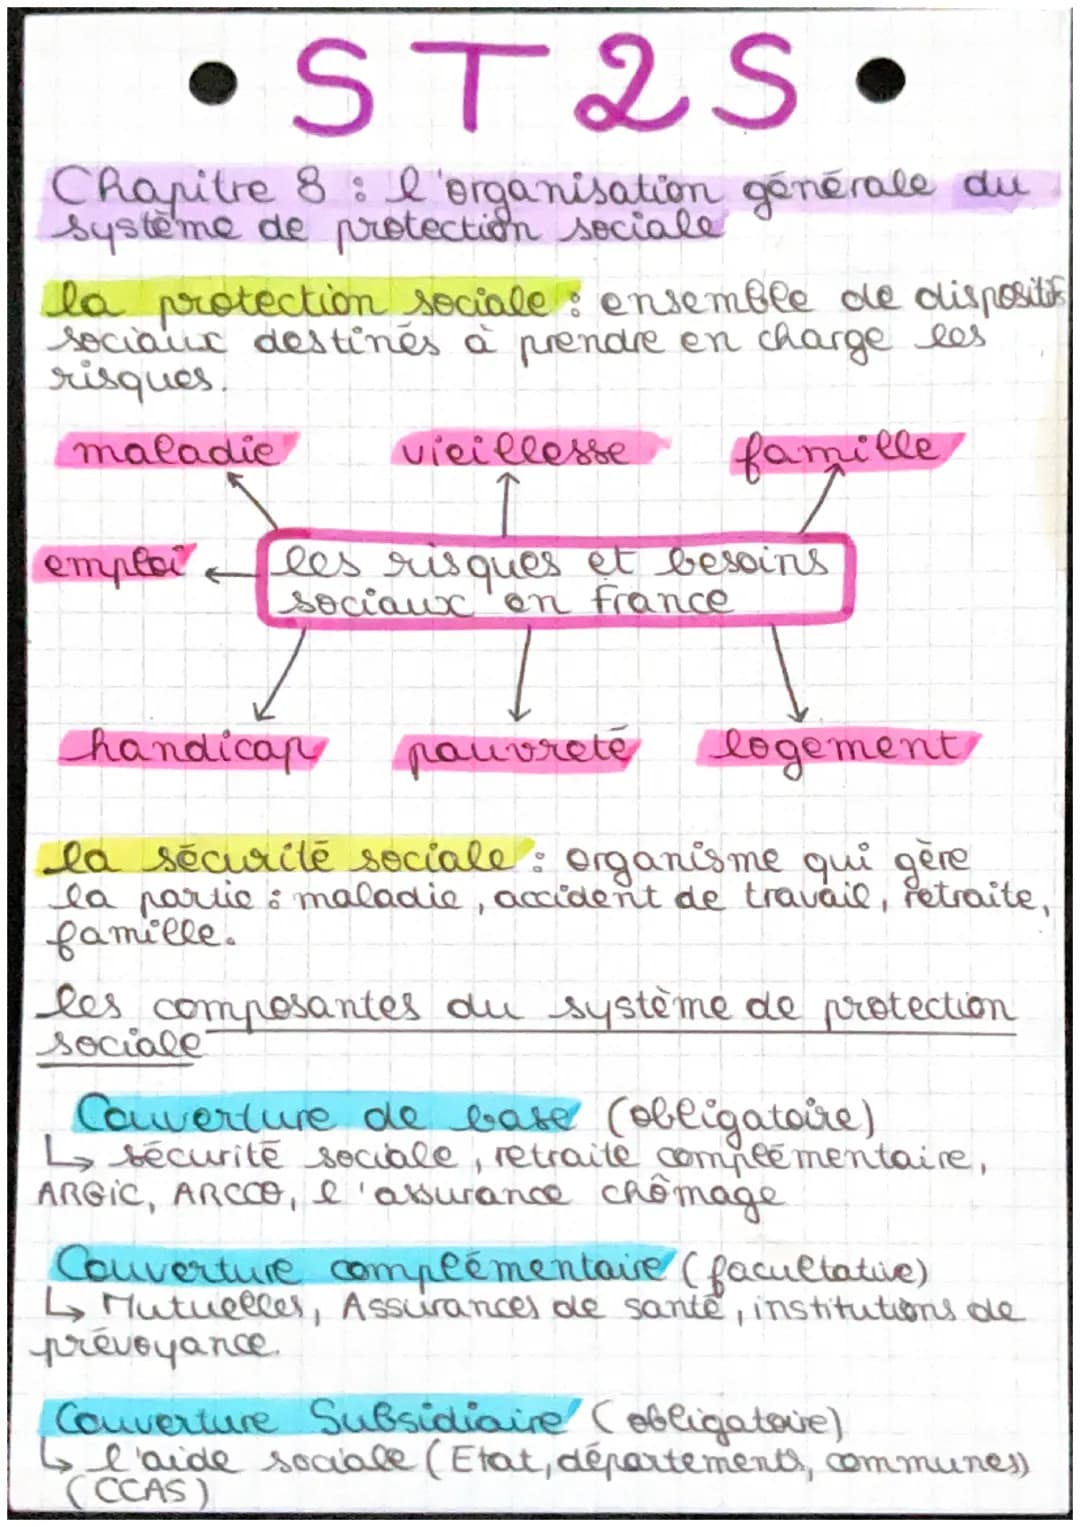 • ST2S •
Chapitre 8 : l'organisation générale du
système de protection sociale
la protection sociale : ensemble de dispositifs
sociaux destinés à prendre en charge les
risques.
maladie vieillesse famille
emploi les risques et besoins
sociaux en france
handicap pauvreté logement
la sécurité sociale : organisme qui gère
la partie : maladie, accident de travail, retraite,
famille.
les composantes du système de protection
sociale
Couverture de base (obligatoire)
↳ sécurité sociale, retraite complémentaire,
ARGIC, ARCCO, l'assurance chômage
Couverture complémentaire (facultative)
↳ Mutuelles, Assurances de santé, institutions de
prévoyance.
Couverture Subsidiaire (obligatoire)
↳ l'aide sociale (Etat, départements, communes)
(CCAS)